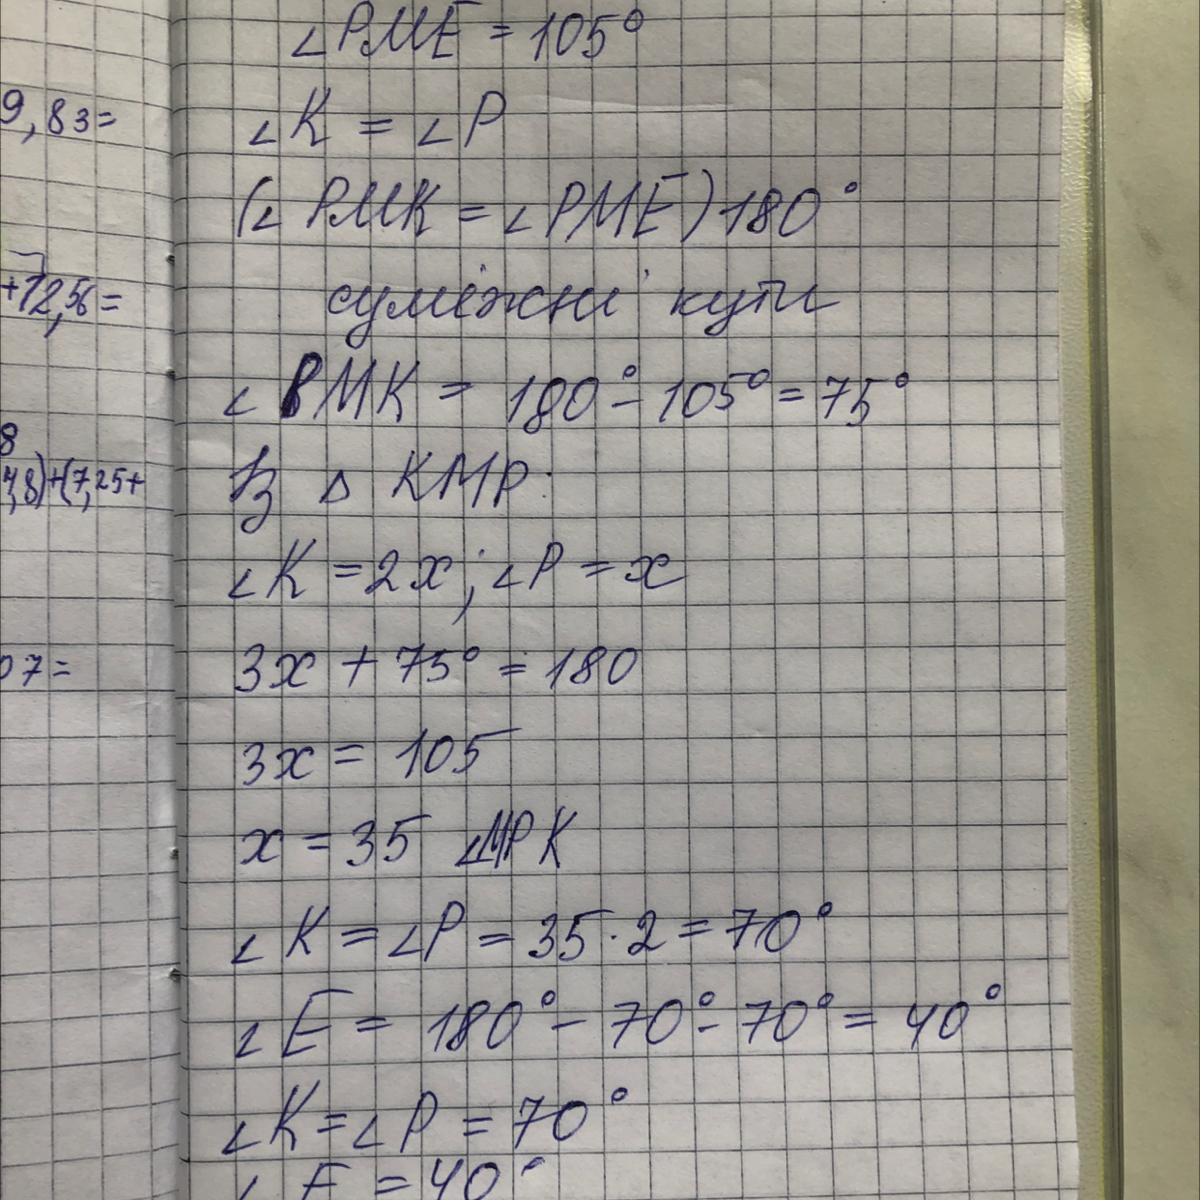 9,83=
+12,56=
8
4,8)+(7,25+
07=
∠PME = 105°
∠K = ∠P
(∠PMK = ∠PME) 180°
суміжні кути
∠PMK = 180° - 105° = 75°
Із △ KMP.
∠K = 2x; ∠P = x
3x + 75° = 180
3x = 105
x = 35 ∠MPK
∠K = ∠P = 35 · 2 = 70°
∠E = 180° - 70° - 70° = 40°
∠K = ∠P = 70°
∠E = 40°